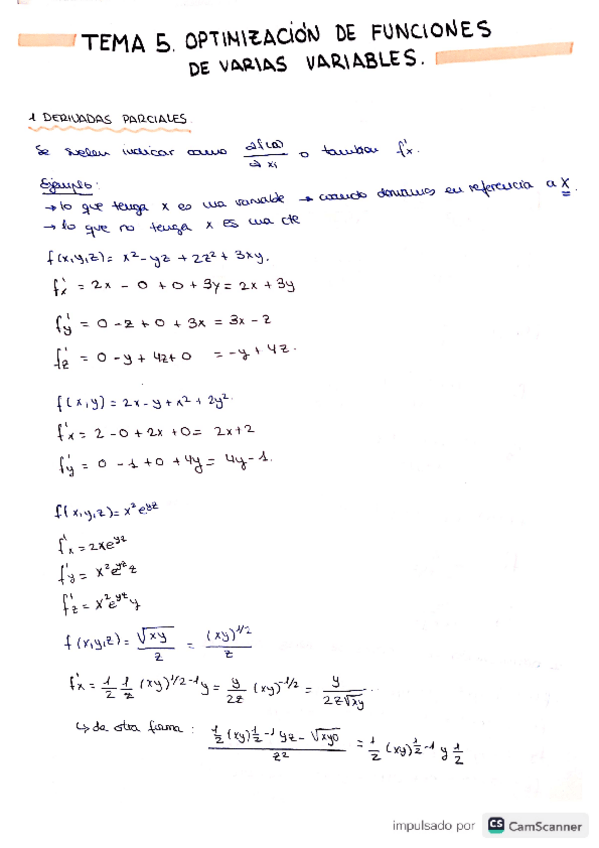 TEMA 5. OPTIMIZACIÓN DE FUNCIONES
DE VARIAS VARIABLES.
1 DERIVADAS PARCIALES.
Se suelen indicar como ∂f(a)/∂xi o tambien f'x.
Ejemplo:
→ lo que tenga x es una variable → cuando derivamos en referencia a x.
→ lo que no tenga x es una cte
f(x,y,z) = x² - yz + 2z² + 3xy.
f'x = 2x - 0 + 0 + 3y = 2x + 3y
f'y = 0 - z + 0 + 3x = 3x - z
f'z = 0 - y + 4z + 0 = -y + 4z.
f(x,y) = 2x - y + x² + 2y².
f'x = 2 - 0 + 2x + 0 = 2x + 2
f'y = 0 - 1 + 0 + 4y = 4y - 1.
f(x,y,z) = x² e^yz
f'x = 2x e^yz
f'y = x² e^yz z
f'z = x² e^yz y
f(x,y,z) = √xy / z = (xy)^1/2 / z
f'x = 1/2 1/z (xy)^1/2-1 y = y/2z (xy)^-1/2 = y / 2z√xy
↳ de otra forma: (1/2 (xy)^1/2-1 yz - √xy0) / z² = 1/2 (xy)^1/2-1 y 1/z
impulsado por CS CamScanner